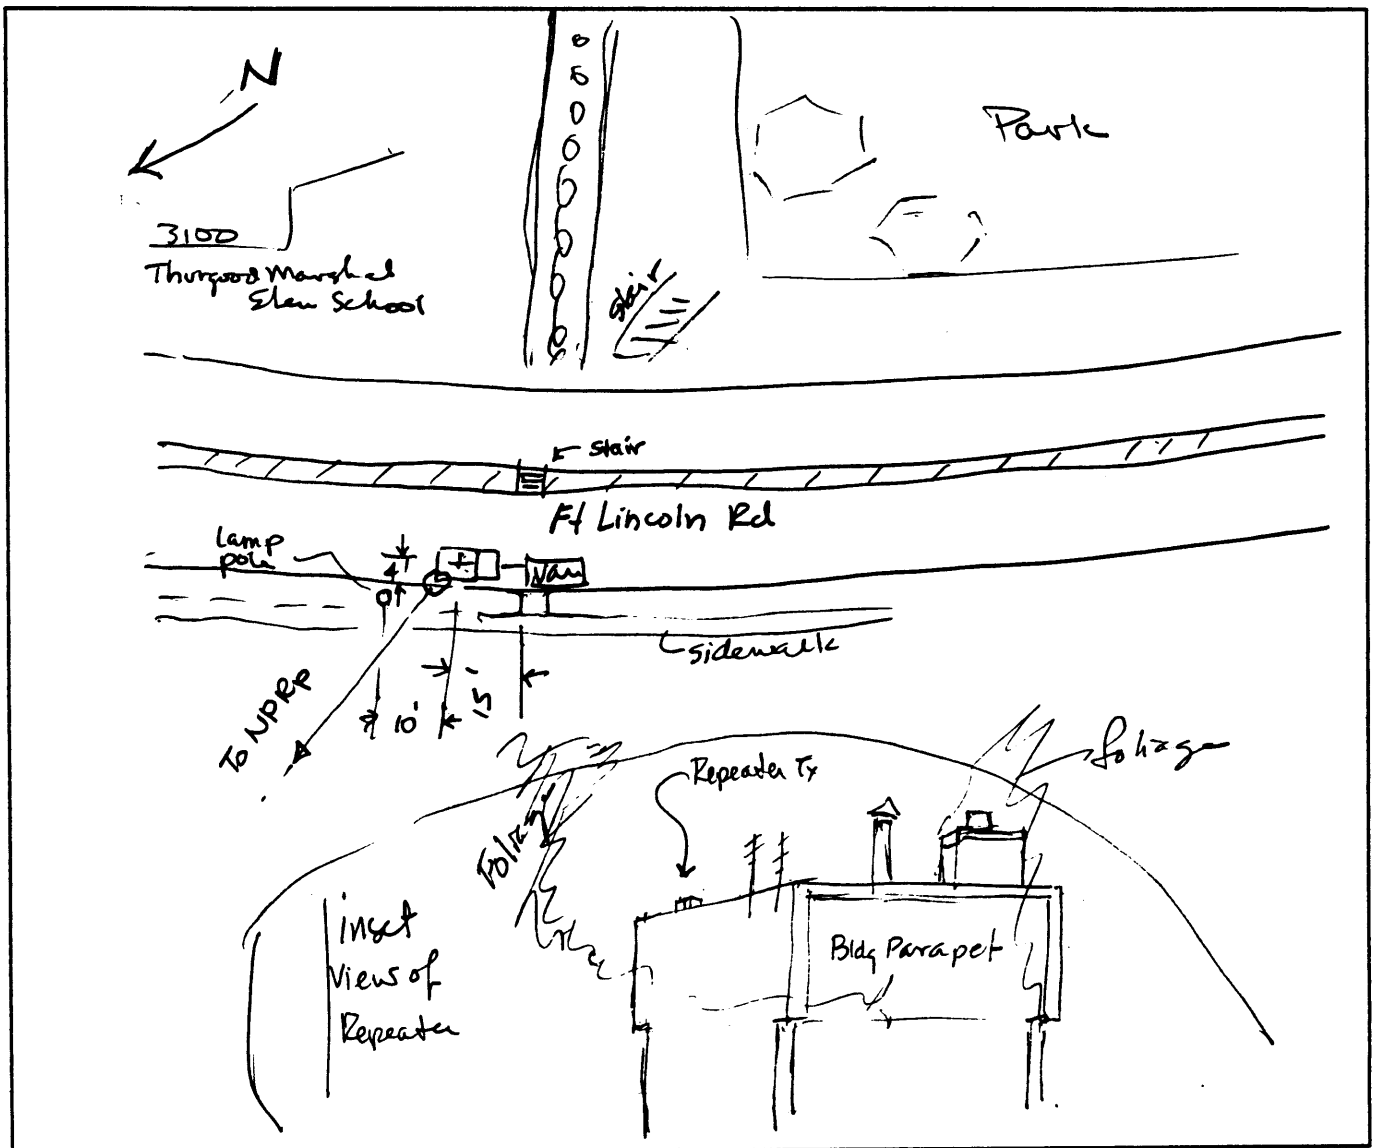 N
Park
3100
Thurgood Marshal
Elem School
stair
stair
Ft Lincoln Rd
Lamp
pole
4'
Van
sidewalk
To NPRP
10'
15'
foliage
Repeater Tx
Foliage
inset
View of
Repeater
Bldg Parapet